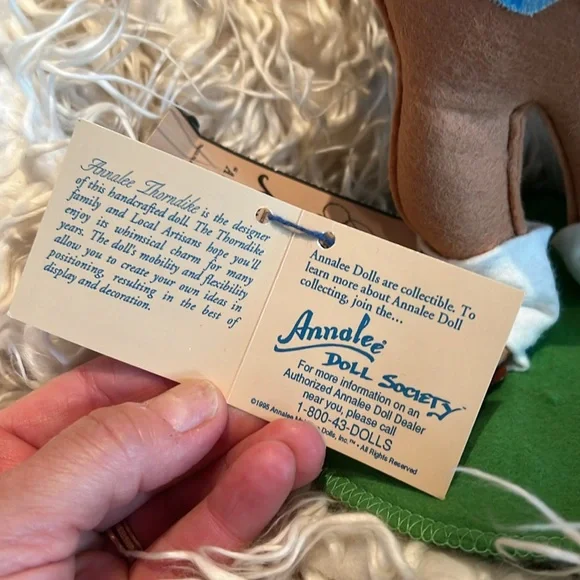 Annalee Thorndike is the designer
of this handcrafted doll. The Thorndike
family, and Local Artisans hope you'll
enjoy its whimsical charm for many
years. The doll's mobility and flexibility
allow you to create your own ideas in
positioning, resulting in the best of
display and decoration.
Annalee Dolls are collectible. To
learn more about Annalee Doll
collecting, join the...
Annalee
DOLL SOCIETY™
For more information on an
Authorized Annalee Doll Dealer
near you, please call
1-800-43-DOLLS
©1995 Annalee Dolls, Inc.™ • All Rights Reserved